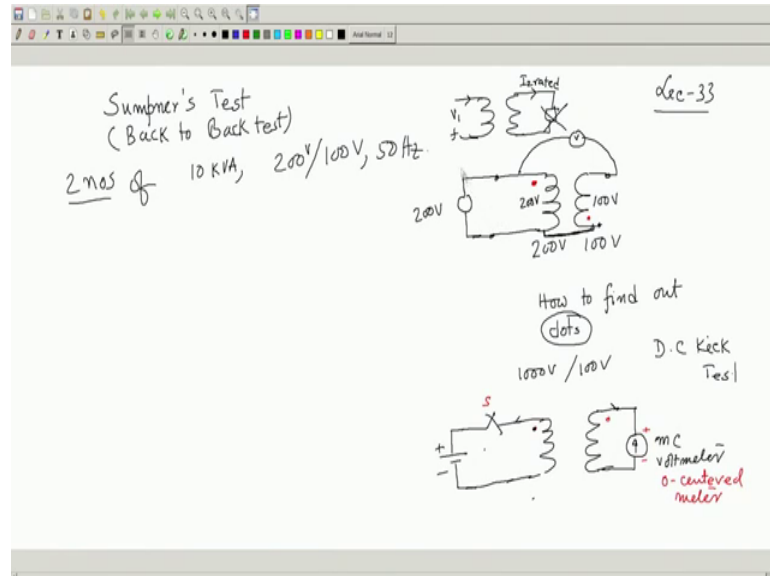 Arial Normal 12
Lec-33
Sumpner's Test
(Back to Back test)
2 nos of 10 KVA, 200V/100V, 50 Hz.
I2 rated
V1
V
200V
200V
100V
200V 100V
How to find out
dots
1000V / 100V
D.C Kick
Test
S
+
-
+
-
mc
voltmeter
0-centered
meter